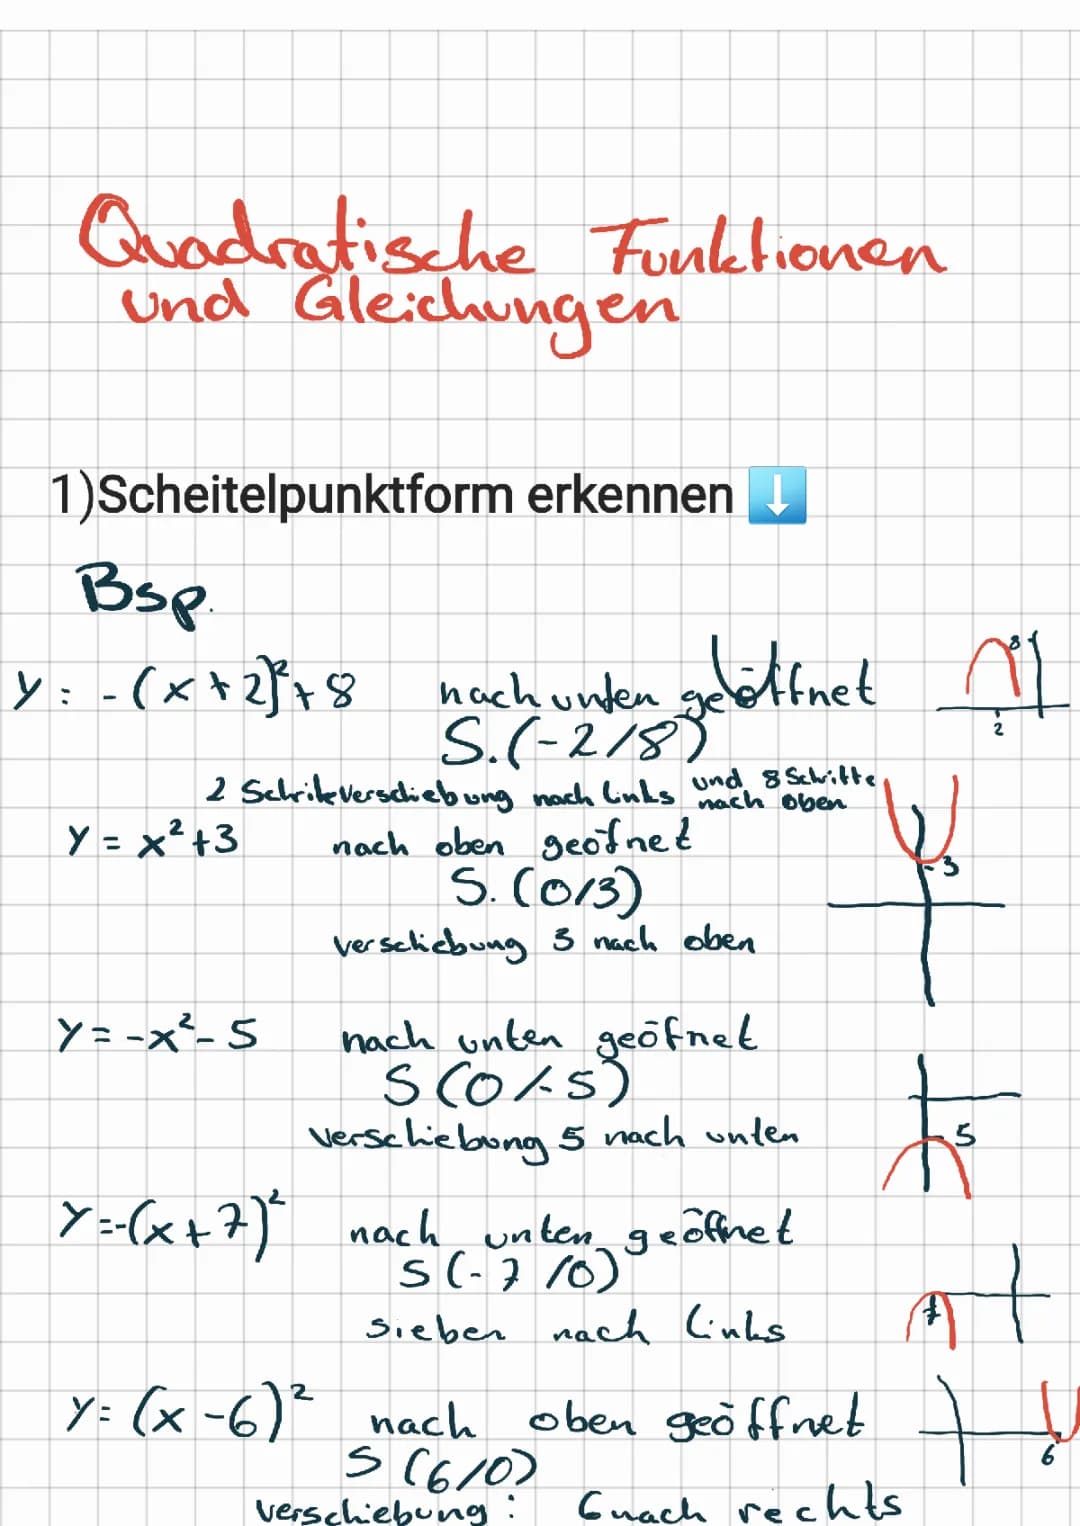 Quadratische Funktionen
und Gleichungen
1)Scheitelpunktform erkennen ⬇️
Bsp.
y: -(x+2)²+8 nach unten geöffnet
S.(-2/8)
8
2
2 Schritte Verschiebung nach links und 8 Schritte nach oben
y = x²+3 nach oben geöfnet
S. (0/3)
3
Verschiebung 3 nach oben
y = -x²- 5 nach unten geöfnet
S (0/-5)
5
Verschiebung 5 nach unten
y=-(x+7)² nach unten geöffnet
S (-7/0)
7
sieben nach links
y= (x-6)² nach oben geöffnet
S (6/0)
6
Verschiebung: 6 nach rechts